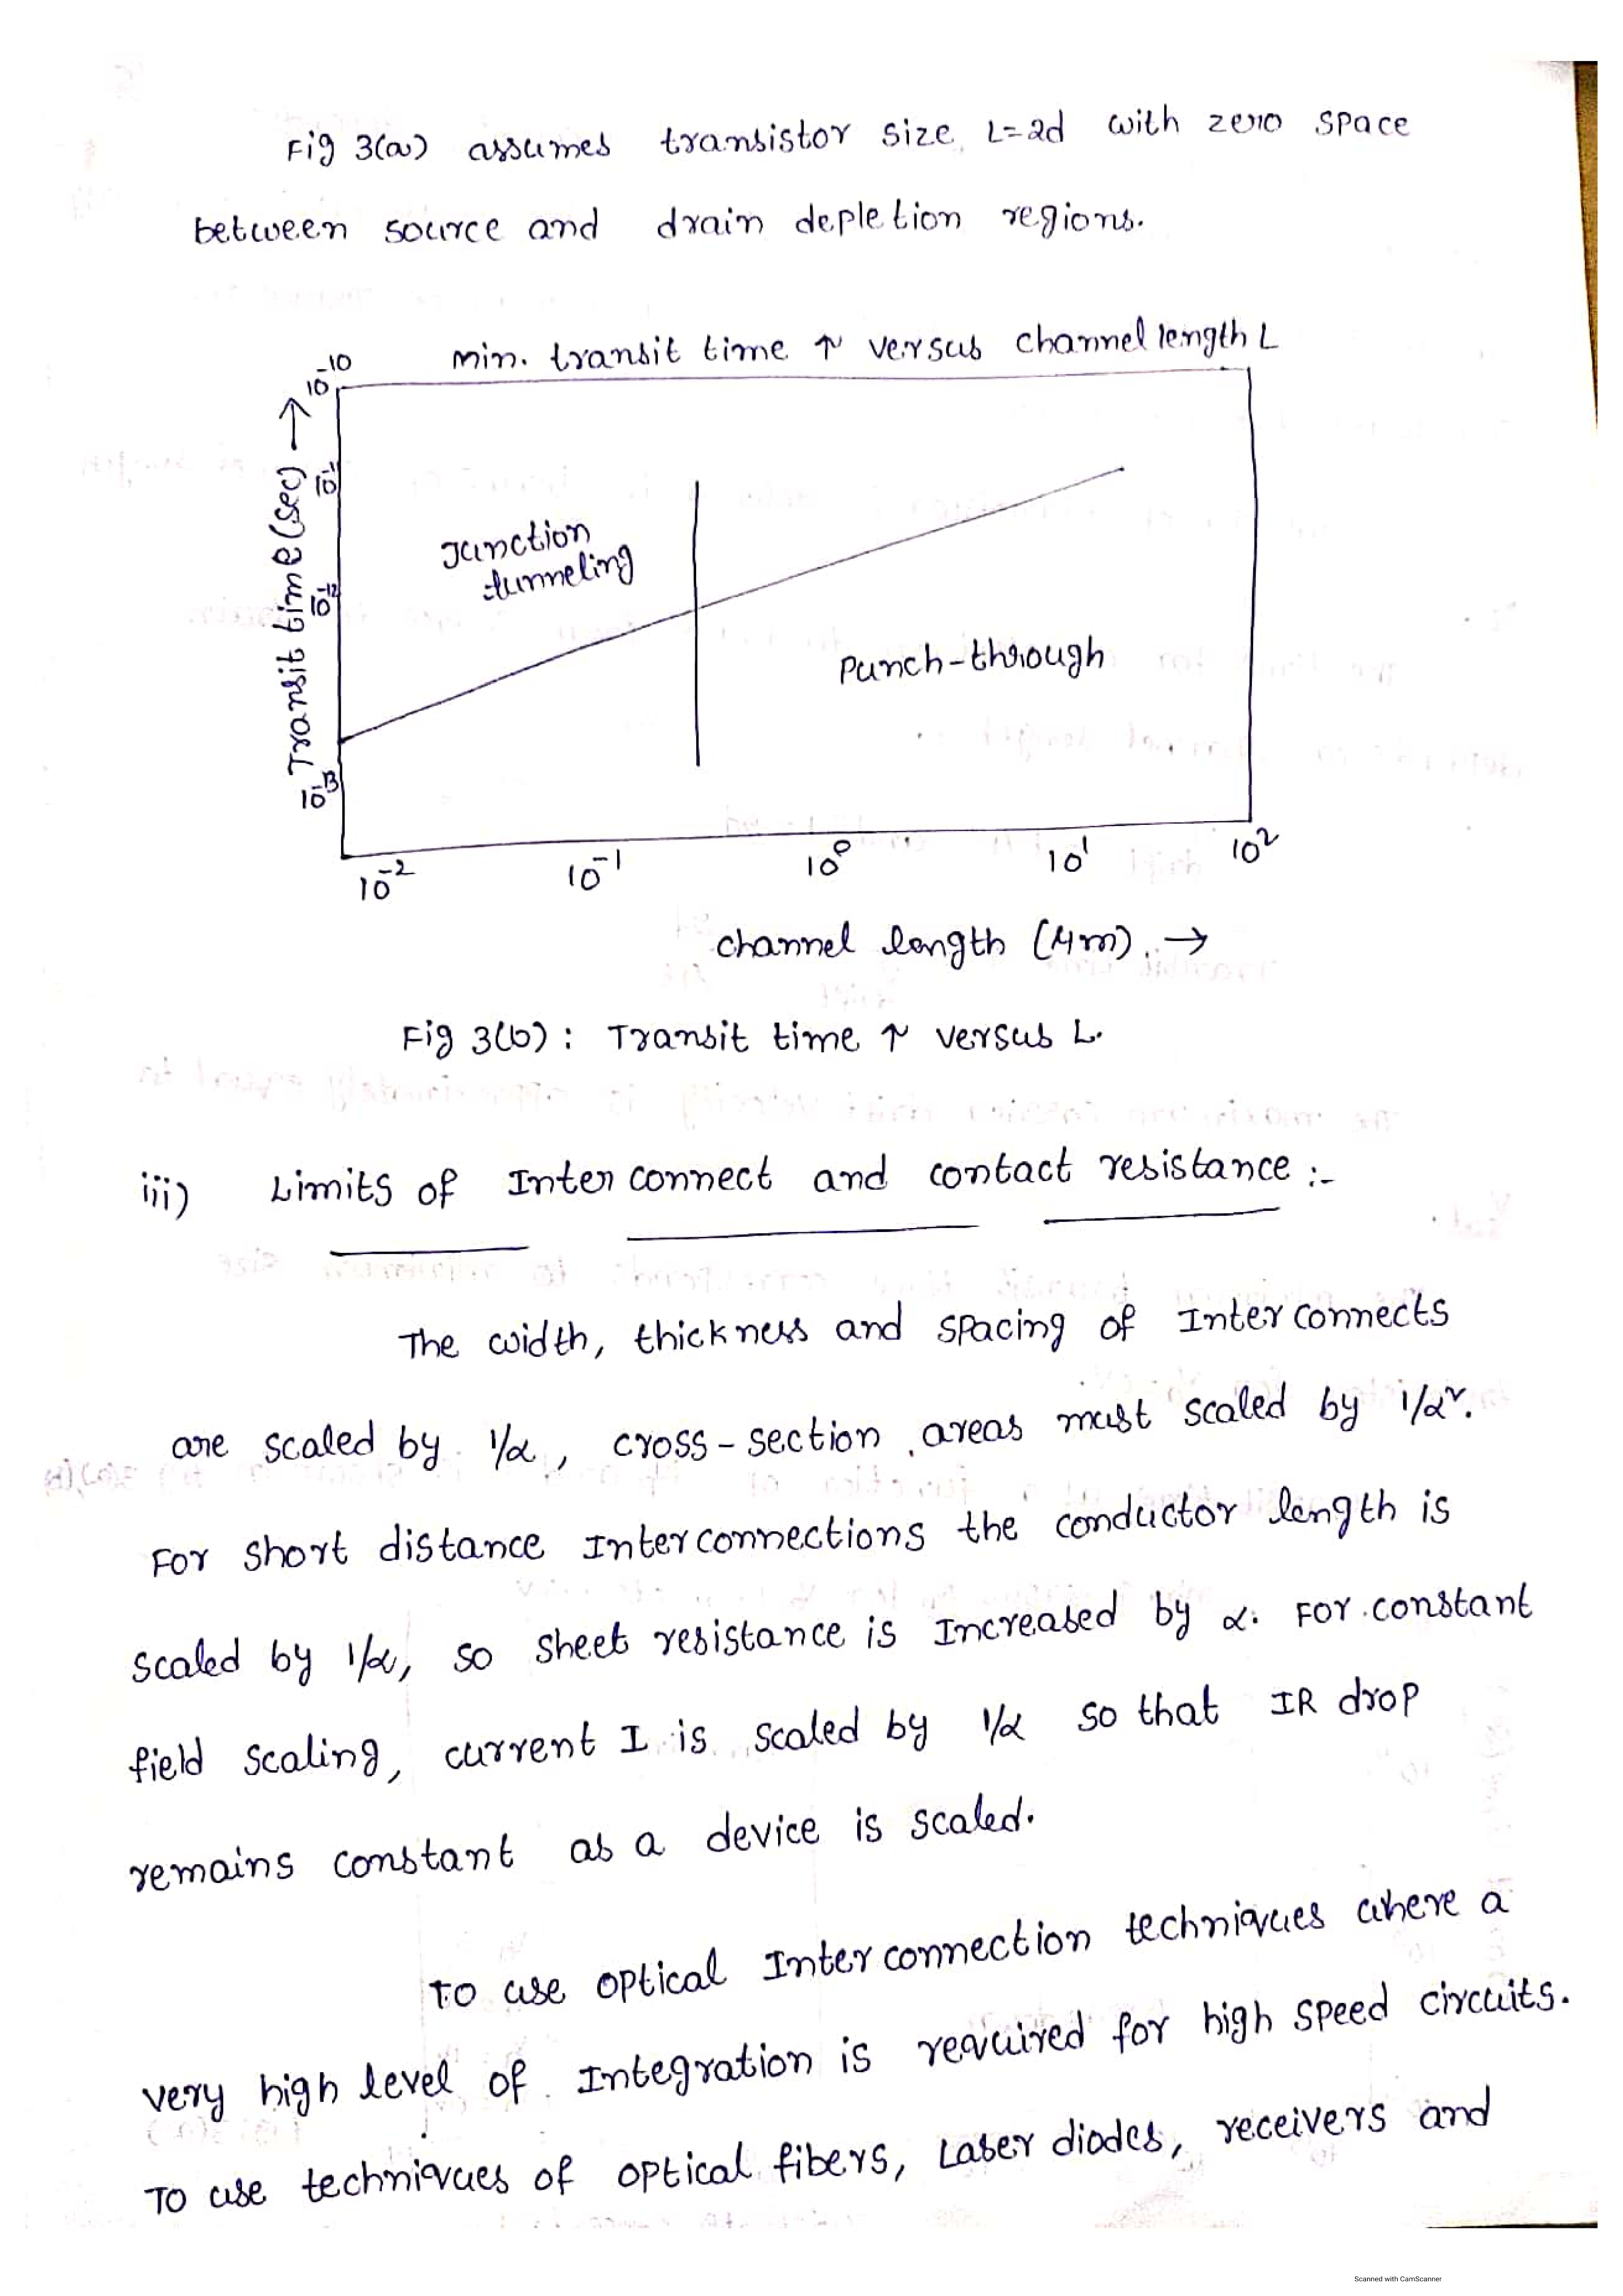 Fig 3(a) assumes transistor size L=2d with zero space
between source and drain depletion regions.
min. transit time ↑ versus channel length L
10⁻¹⁰
10⁻¹¹
10⁻¹²
10⁻¹³
Transit time (sec) →
Junction
tunneling
Punch-through
10⁻² 10⁻¹ 10⁰ 10¹ 10²
channel length (μm) →
Fig 3(b): Transit time ↑ versus L.
iii) Limits of Inter connect and contact resistance :-
The width, thickness and spacing of Inter connects
are scaled by 1/α, cross-section areas must scaled by 1/α².
For short distance Inter connections the conductor length is
scaled by 1/α, so sheet resistance is Increased by α. For constant
field scaling, current I is scaled by 1/α so that IR drop
remains constant as a device is scaled.
To use optical Inter connection techniques where a
very high level of Integration is required for high speed circuits.
To use techniques of optical fibers, Laser diodes, receivers and
Scanned with CamScanner